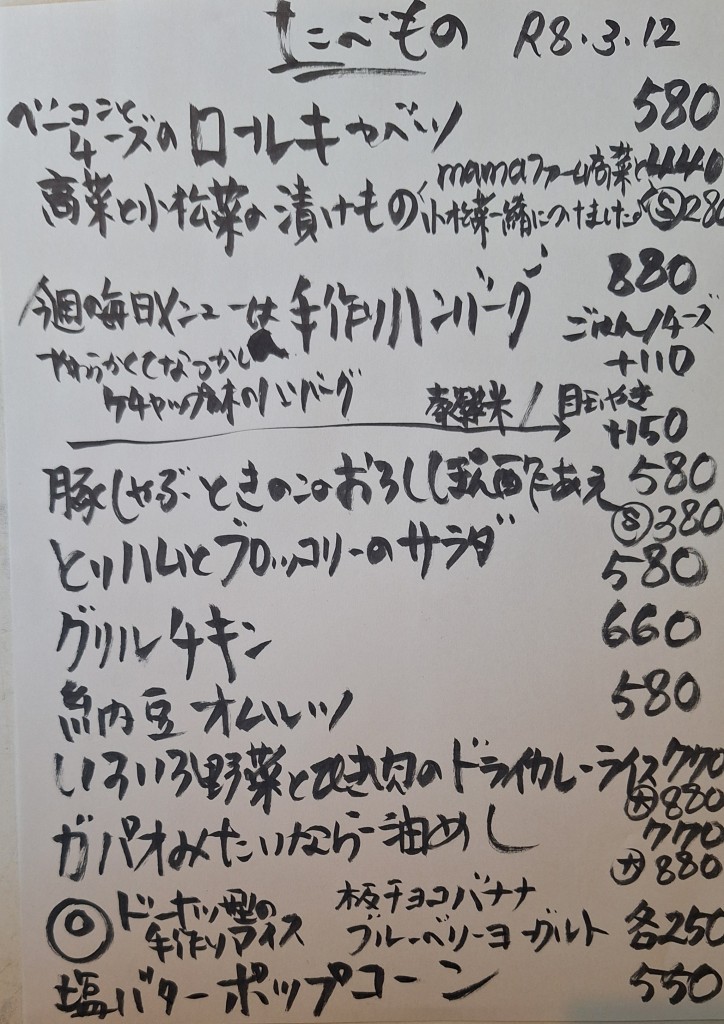 たべもの R8.3.12
ベーコンとチーズのロールキャベツ 580
高菜と小松菜の漬けもの mamaファーム高菜と小松菜一緒につけました。 440 Ⓢ280
今週の毎日メニューは手作りハンバーグ 880
やわらかくてなつかし
ケチャップ味のハンバーグ
ごはん/チーズ +110
目玉やき +150
豚しゃぶときのこのおろしぽん酢あえ 580 Ⓢ380
とりハムとブロッコリーのサラダ 580
グリルチキン 660
納豆オムレツ 580
いろいろ野菜とひき肉のドライカレーライス 770 大880
ガパオみたいなラー油めし 770 大880
ドーナツ型の手作りアイス 板チョコバナナ
ブルーベリーヨーグルト 各250
塩バターポップコーン 550